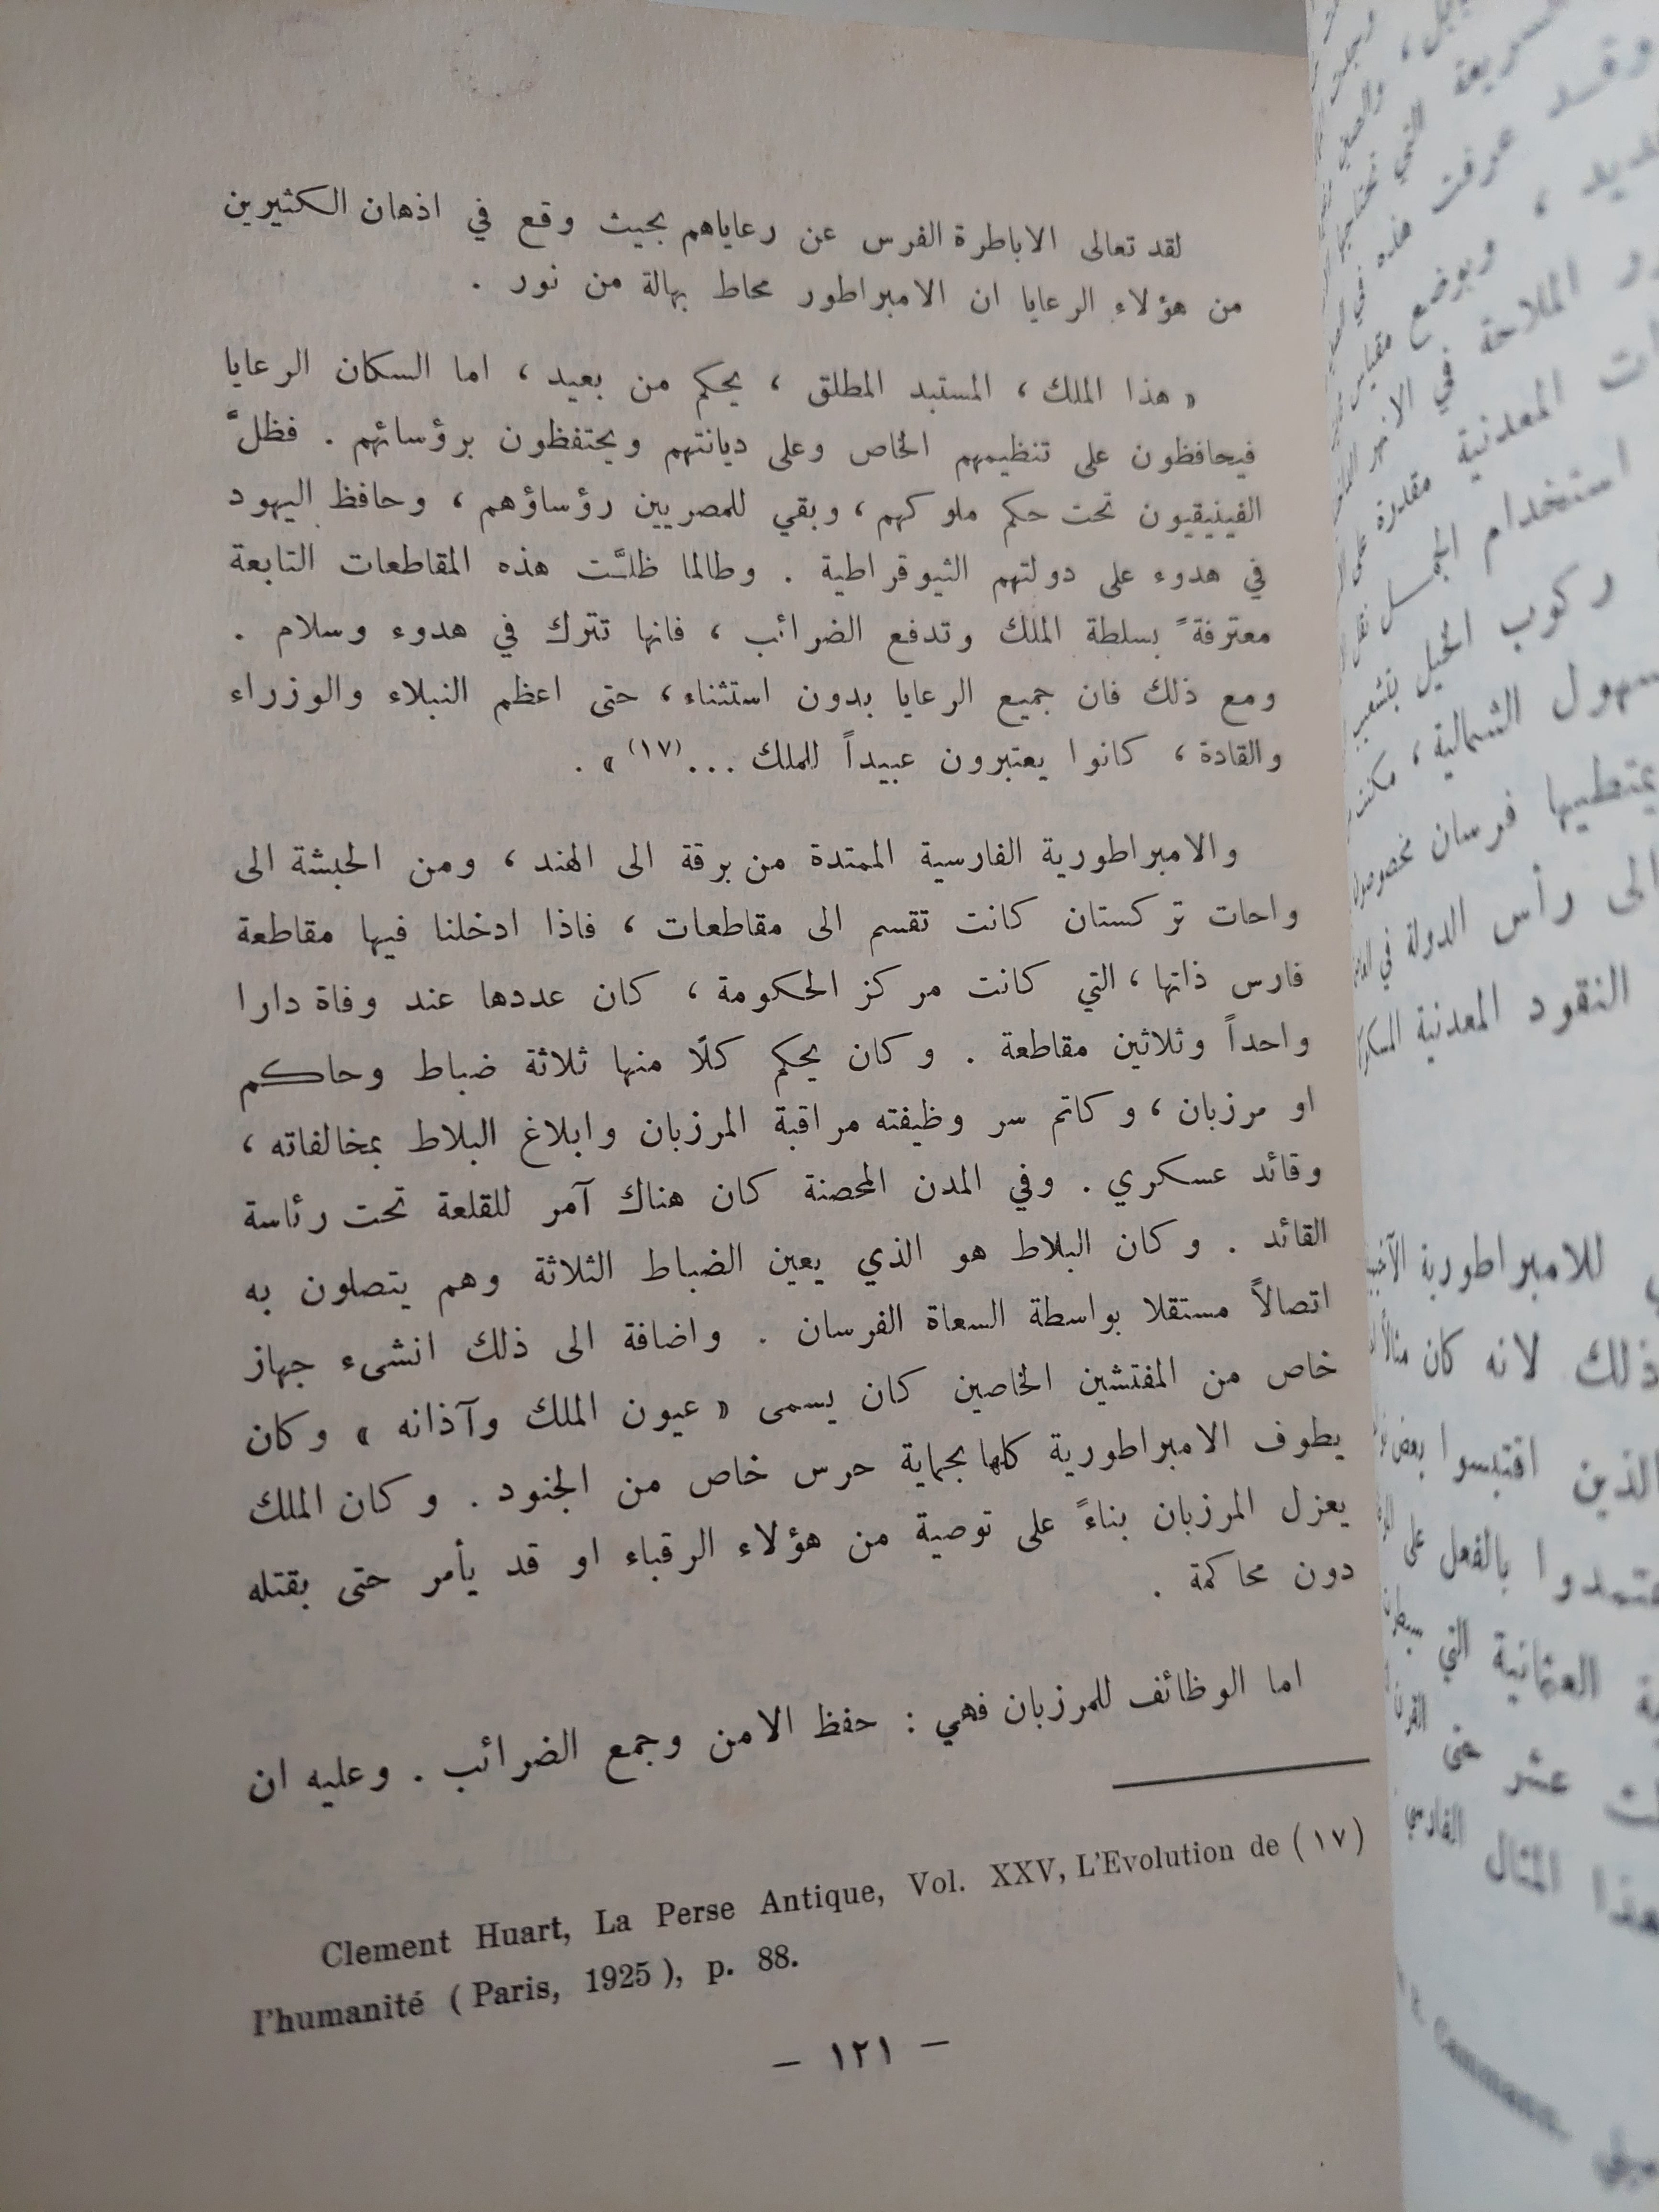 لقد تعالى الاباطرة الفرس عن رعاياهم بحيث وقع في اذهان الكثيرين
من هؤلاء الرعايا ان الامبراطور محاط بهالة من نور .
« هذا الملك ، المستبد المطلق ، يحكم من بعيد ، اما السكان الرعايا
فيحافظون على تنظيمهم الخاص وعلى ديانتهم ويحتفظون برؤسائهم . فظلَّ
الفينيقيون تحت حكم ملوكهم ، وبقي للمصريين رؤساؤهم ، وحافظ اليهود
في هدوء على دولتهم الثيوقراطية . وطالما ظلَّت هذه المقاطعات التابعة
معترفةً بسلطة الملك وتدفع الضرائب ، فانها تترك في هدوء وسلام .
ومع ذلك فان جميع الرعايا بدون استثناء ، حتى اعظم النبلاء والوزراء
والقادة ، كانوا يعتبرون عبيداً للملك ...(١٧) » .
والامبراطورية الفارسية الممتدة من برقة الى الهند ، ومن الحبشة الى
واحات تركستان كانت تقسم الى مقاطعات ، فاذا ادخلنا فيها مقاطعة
فارس ذاتها ، التي كانت مركز الحكومة ، كان عددها عند وفاة دارا
واحداً وثلاثين مقاطعة . وكان يحكم كلًا منها ثلاثة ضباط وحاكم
او مرزبان ، وكاتم سر وظيفته مراقبة المرزبان وابلاغ البلاط بمخالفاته ،
وقائد عسكري . وفي المدن المحصنة كان هناك آمر للقلعة تحت رئاسة
القائد . وكان البلاط هو الذي يعين الضباط الثلاثة وهم يتصلون به
اتصالاً مستقلا بواسطة السعاة الفرسان . واضافة الى ذلك انشىء جهاز
خاص من المفتشين الخاصين كان يسمى « عيون الملك وآذانه » وكان
يطوف الامبراطورية كلها بحماية حرس خاص من الجنود . وكان الملك
يعزل المرزبان بناءً على توصية من هؤلاء الرقباء او قد يأمر حتى بقتله
دون محاكمة .
اما الوظائف للمرزبان فهي : حفظ الامن وجمع الضرائب . وعليه ان
(١٧) Clement Huart, La Perse Antique, Vol. XXV, L'Evolution de
l'humanité ( Paris, 1925 ), p. 88.
— ١٢١ —
وقد عرفت هذه
الملاحة في
المعدنية
استخدام
ركوب الخيل
الشمالية ،
يمتطيها فرسان
الى رأس الدولة في
النقود المعدنية
للامبراطورية
ذلك لانه كان
الذين اقتبسوا بعض
بالفعل على
العثمانية التي
عشر حتى
هذا المثال الفارسي